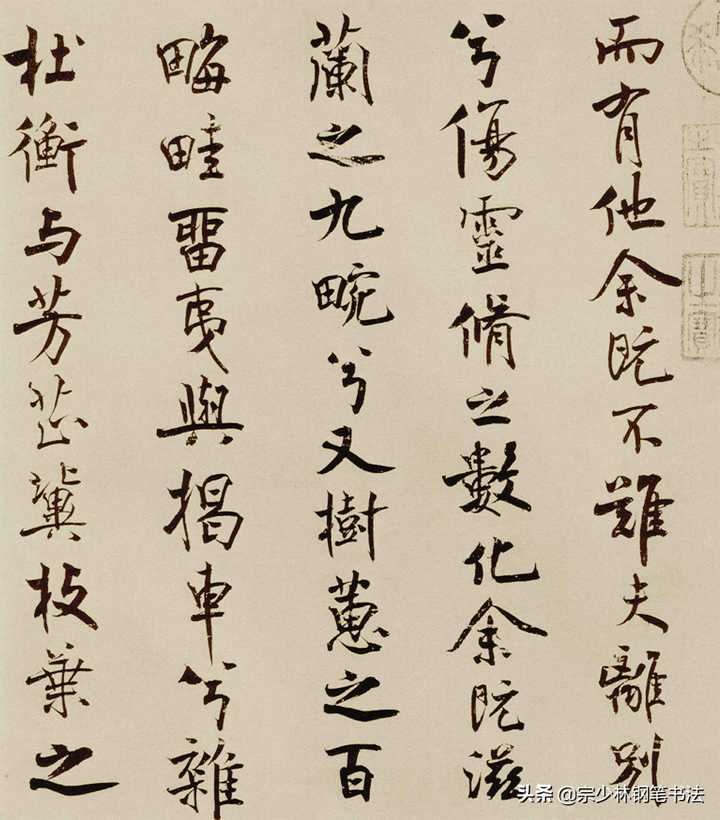 而有他余既不難夫離別
兮傷靈脩之數化余既滋
蘭之九畹兮又樹蕙之百
畮畦畱夷與揭車兮雜
杜衡与芳芷冀枝葉之
头条 @宗少林钢笔书法